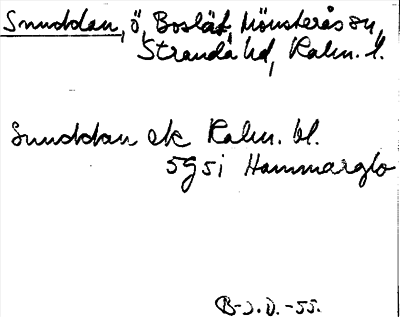 Snuddan, ö, Boslät, Mönsterås sn,
Stranda hd, Kalm. l.
Snuddan ek Kalm. bl.
5g5i Hammarglo
B-J.D.-55.